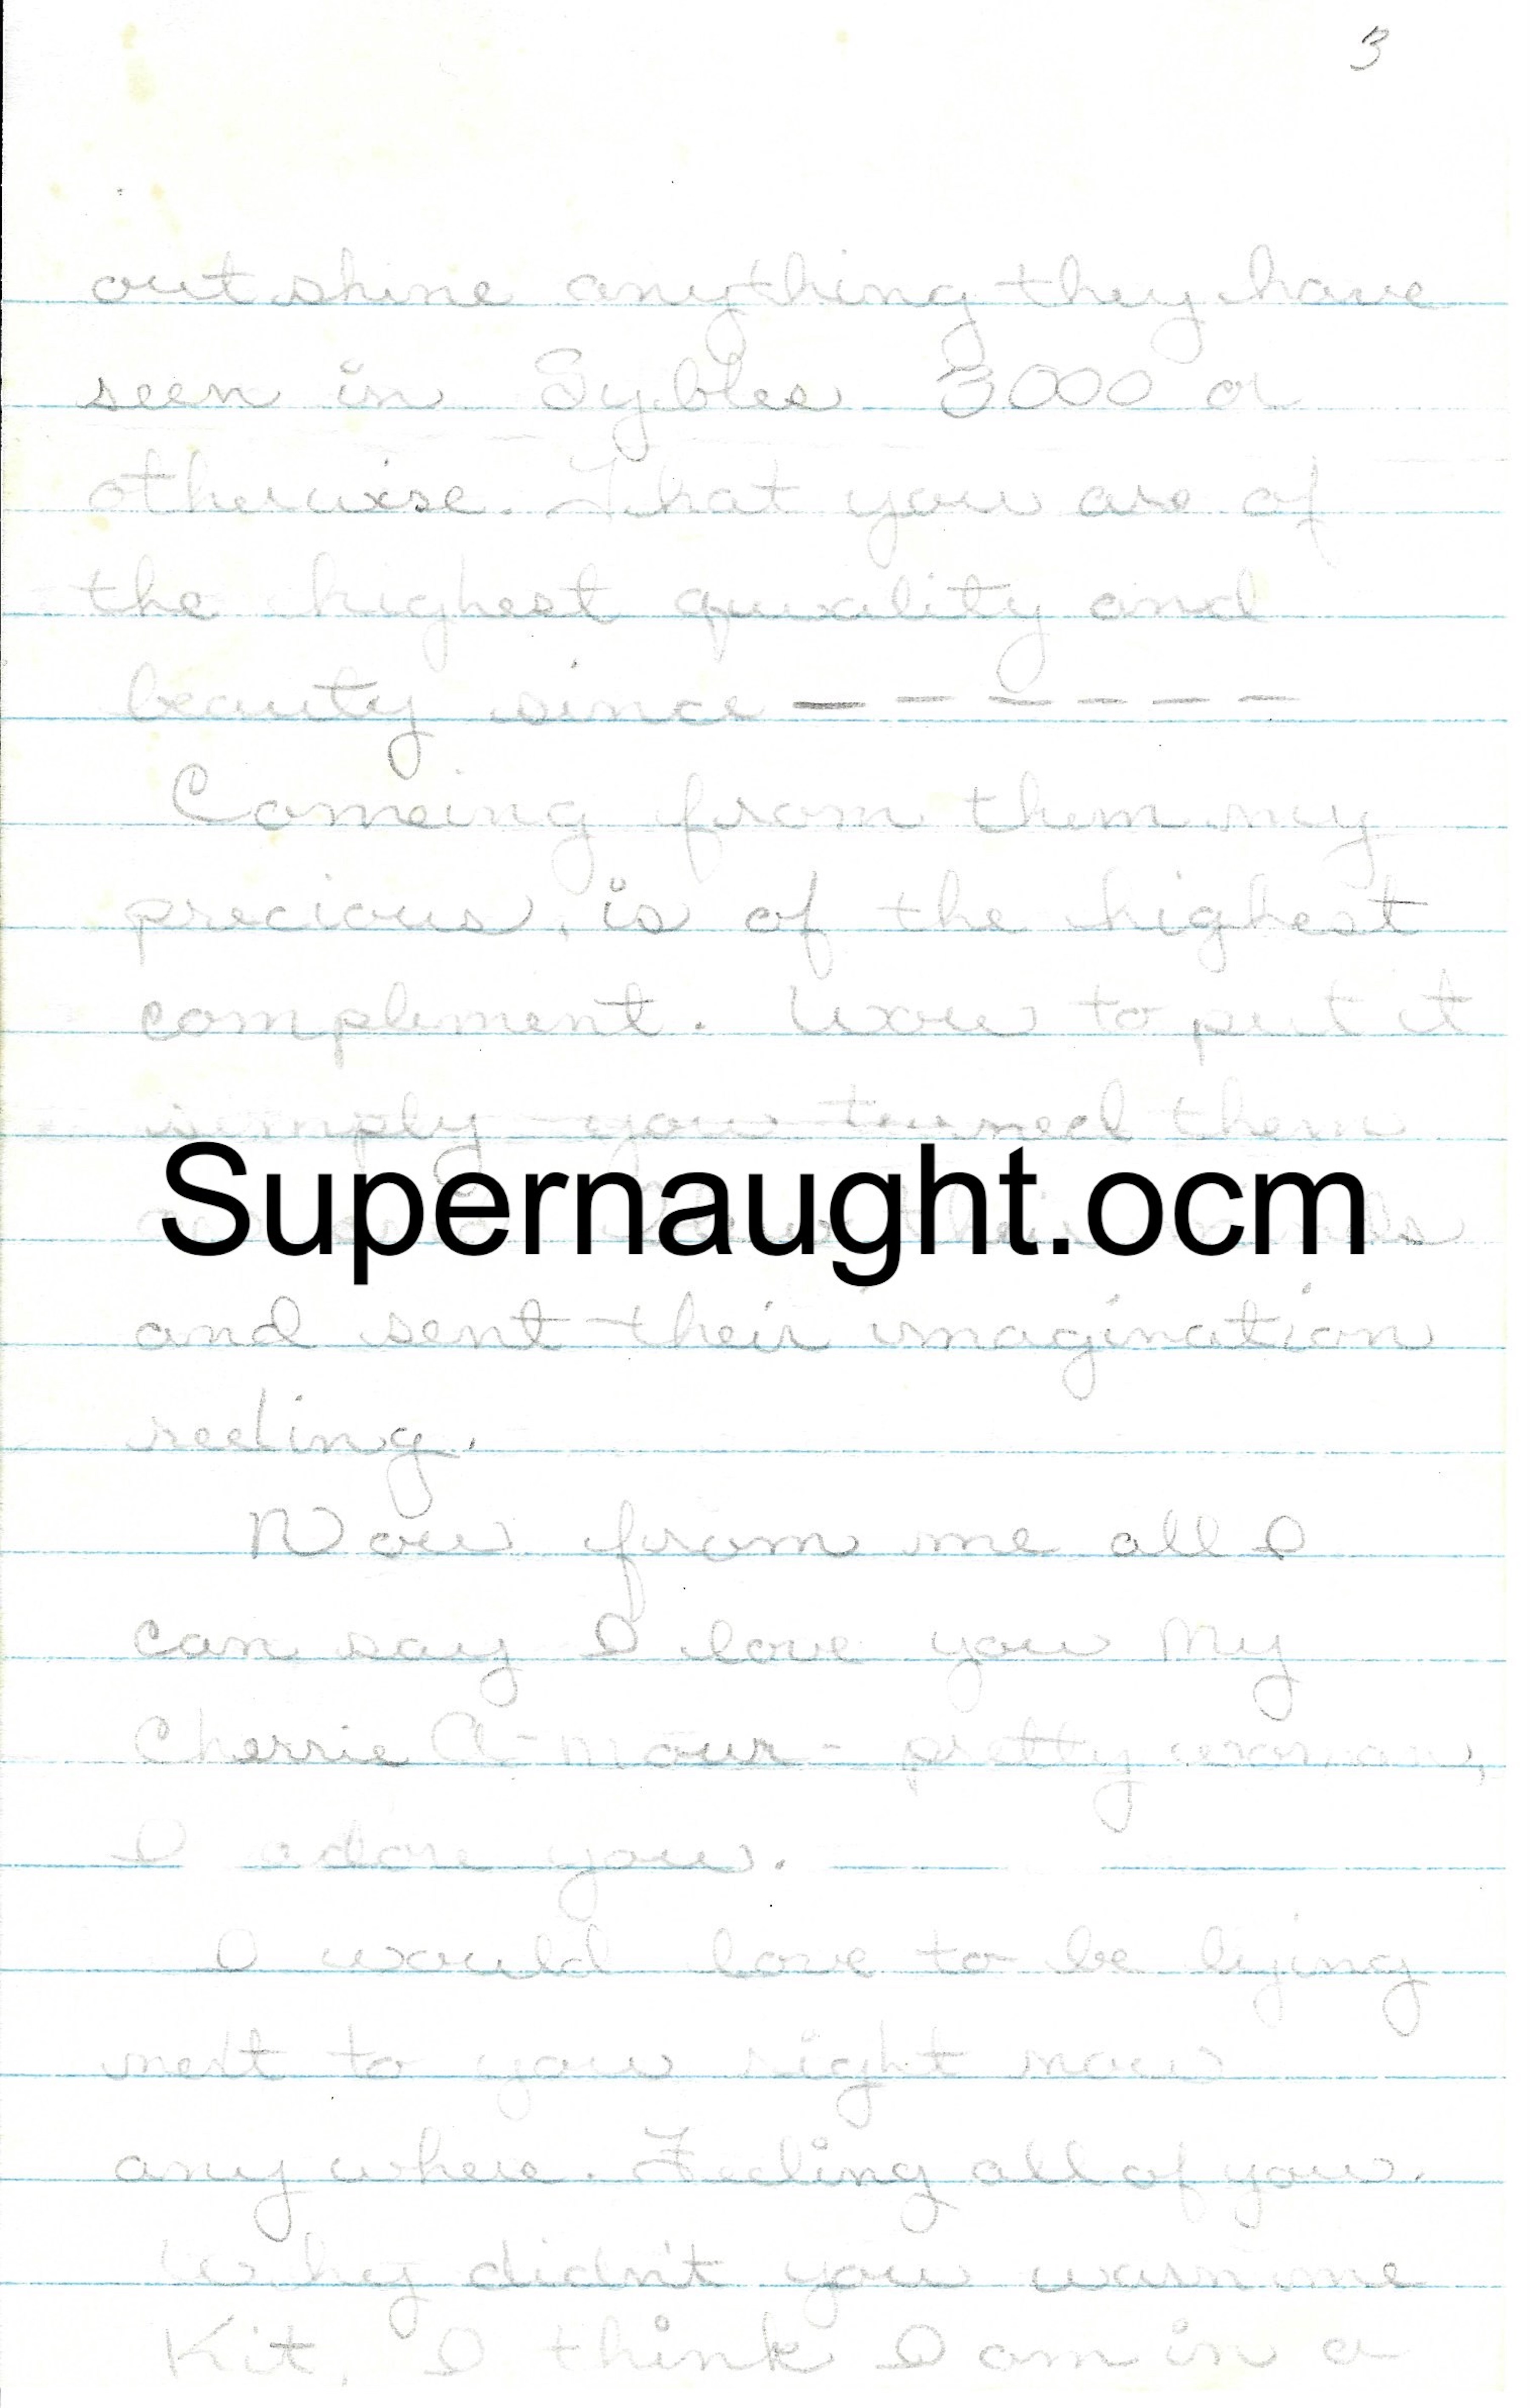 3
out shine anything they have
seen in Sybles 3000 or
otherwise. That you are of
the highest quuality and
beauty since — — — — — —
Comeing from them my
precious, is of the highest
complement. Wow to put it
simply you turned them
Supernaught.ocm
and sent their imagination
reeling.
Now from me all I
can say I love you My
Cherrie A-mour - pretty woman,
I adore you.
I would love to be lying
next to you right now
any where. Feeling all of you.
Why didn't you warn me
Kit, I think I am in a